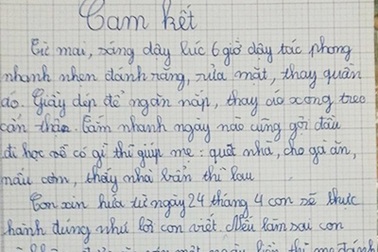 Cam kết
Từ mai, sáng dậy lúc 6 giờ dậy tác phong
nhanh nhẹn đánh răng, rửa mặt, thay quần
áo. Giầy dép để ngăn nắp, thay áo xong treo
cẩn thận. Tắm nhanh ngày nào cũng gội đầu
đi học về có gì thì giúp mẹ: quét nhà, cho gà ăn,
nấu cơm, thấy nhà bẩn thì lau
Con xin hứa từ ngày 24 tháng 4 con sẽ thực
hành đúng như lời con viết. Nếu lần sau con